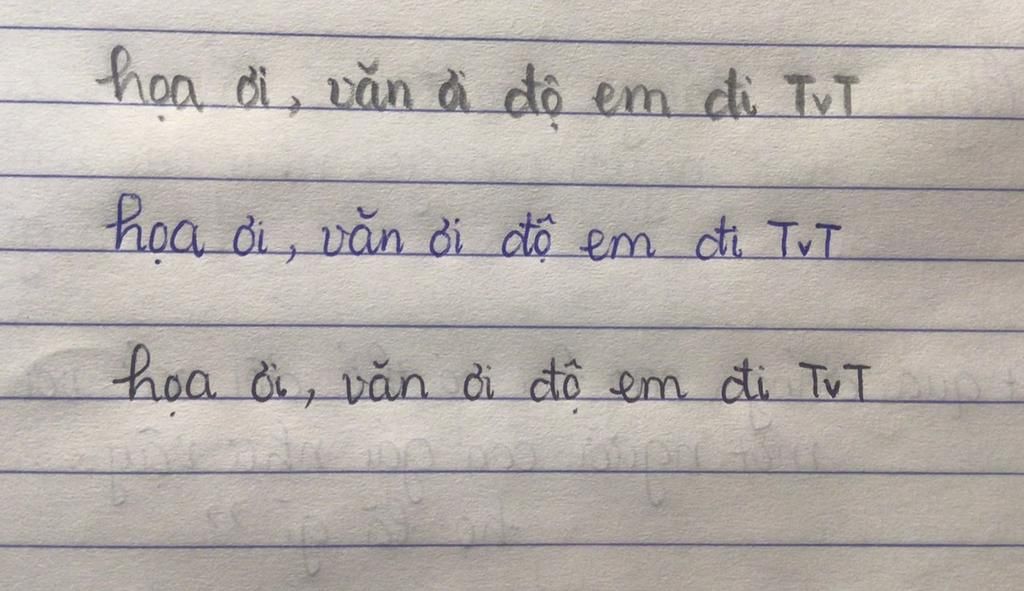 họa ơi, văn ơi độ em đi TvT
họa ơi, văn ơi độ em đi TvT
họa ơi, văn ơi độ em đi TvT